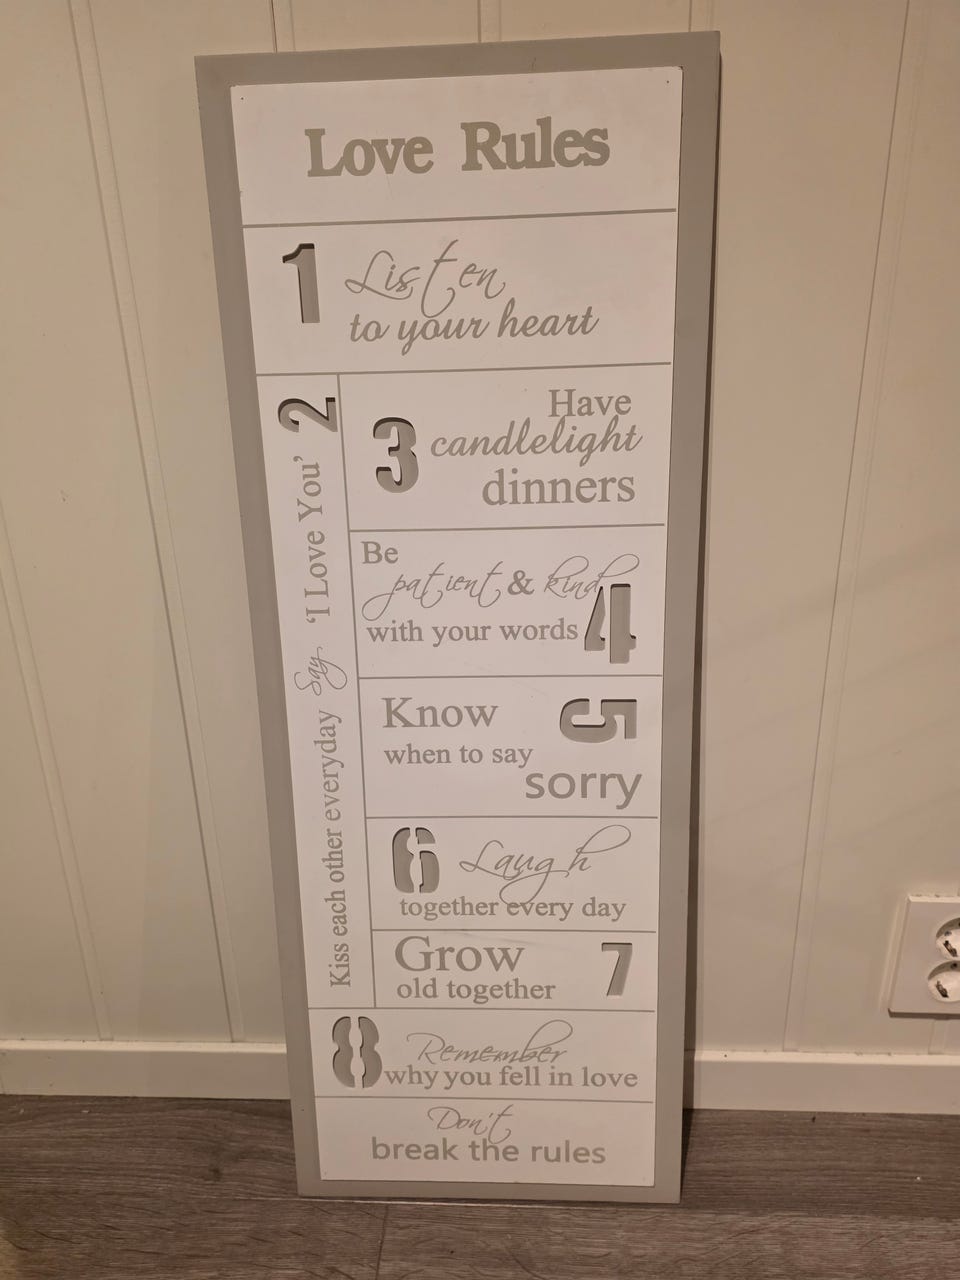 Love Rules
1
Listen
to your heart
2
Kiss each other everyday Say 'I Love You'
3
Have
candlelight
dinners
4
Be
patient & kind
with your words
5
Know
when to say
sorry
6
Laugh
together every day
7
Grow
old together
8
Remember
why you fell in love
Don't
break the rules